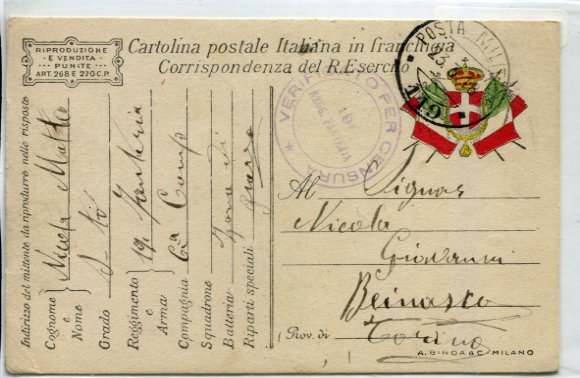 RIPRODUZIONE
E VENDITA
PUNITE
ART. 268 E 270 C.P.
Cartolina postale Italiana in franchigia
Corrispondenza del R. Esercito
POSTA MILITARE
VERIFICATO PER CENSURA
19
Indirizzo del mittente da riprodurre nelle risposte
Cognome e Nome Nicola Matteo
Grado
Reggimento e Arma 19 Fanteria
Compagnia 6a Comp
Squadrone Zona di
Batteria guerra
Riparti speciali
Al Signor
Nicola
Giovanni
Beinasco
(Prov. di Torino
A. BINDA & C. MILANO